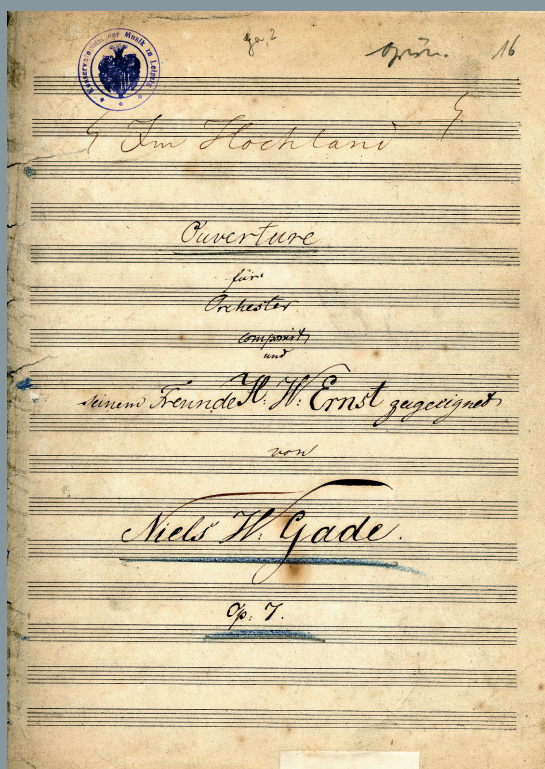 Konservatorium der Musik zu Leipzig
16
Im Hochland
Ouverture
für
Orchester
componirt
und
seinem Freunde H: W: Ernst zugeeignet
von
Niels W: Gade.
Op: 7.